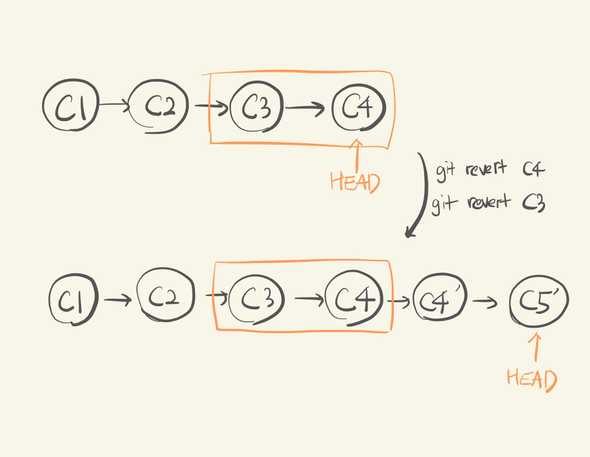 C1 C2 C3 C4
HEAD
git revert C4
git revert C3
C1 C2 C3 C4 C4' C5'
HEAD